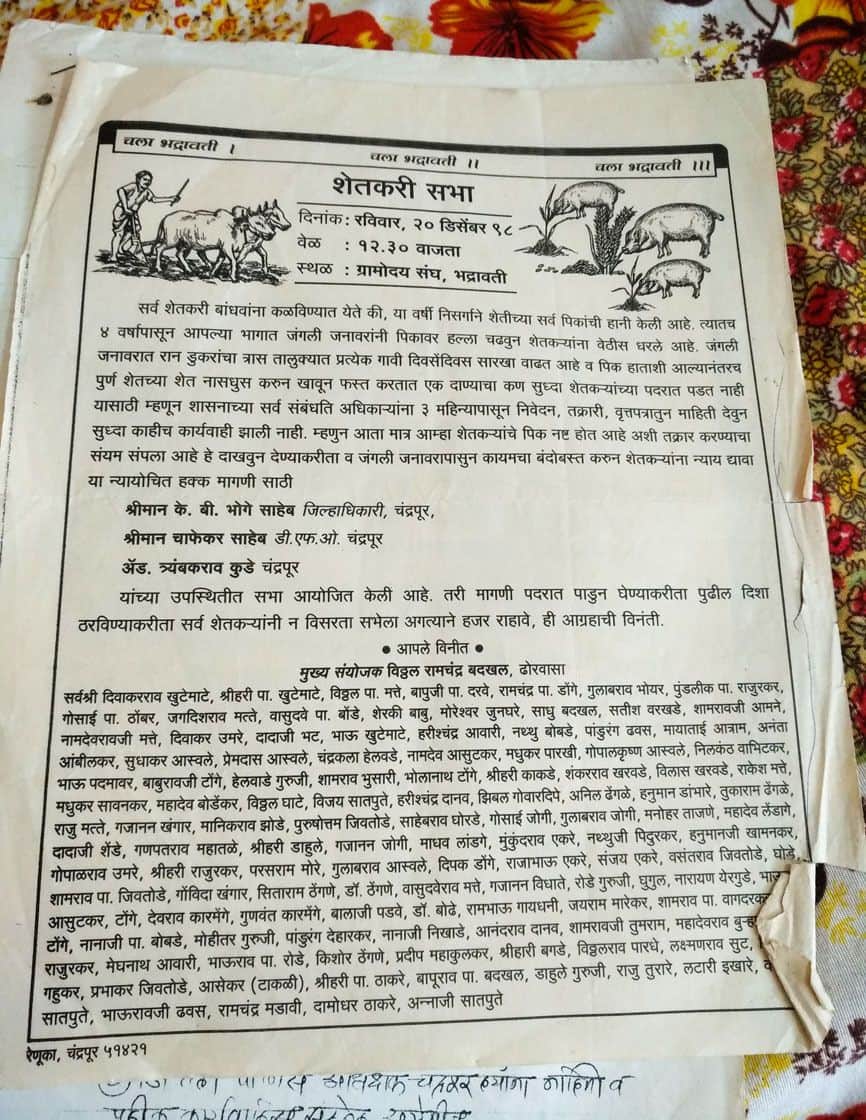 चला भद्रावती । चला भद्रावती ।। चला भद्रावती ।।।
शेतकरी सभा
दिनांक : रविवार, २० डिसेंबर ९८
वेळ : १२.३० वाजता
स्थळ : ग्रामोदय संघ, भद्रावती
सर्व शेतकरी बांधवांना कळविण्यात येते की, या वर्षी निसर्गाने शेतीच्या सर्व पिकांची हानी केली आहे. त्यातच
४ वर्षापासून आपल्या भागात जंगली जनावरांनी पिकावर हल्ला चढवुन शेतकऱ्यांना वेठीस धरले आहे. जंगली
जनावरात रान डुकरांचा त्रास तालुक्यात प्रत्येक गावी दिवसेंदिवस सारखा वाढत आहे व पिक हाताशी आल्यानंतरच
पुर्ण शेतच्या शेत नासधुस करुन खावून फस्त करतात एक दाण्याचा कण सुध्दा शेतकऱ्यांच्या पदरात पडत नाही
यासाठी म्हणून शासनाच्या सर्व संबंधति अधिकाऱ्यांना ३ महिन्यापासून निवेदन, तक्रारी, वृत्तपत्रातुन माहिती देवुन
सुध्दा काहीच कार्यवाही झाली नाही. म्हणुन आता मात्र आम्हा शेतकऱ्यांचे पिक नष्ट होत आहे अशी तक्रार करण्याचा
संयम संपला आहे हे दाखवुन देण्याकरीता व जंगली जनावरापासुन कायमचा बंदोबस्त करुन शेतकऱ्यांना न्याय द्यावा
या न्यायोचित हक्क मागणी साठी
श्रीमान के. बी. भोगे साहेब जिल्हाधिकारी, चंद्रपूर,
श्रीमान चाफेकर साहेब डी.एफ.ओ. चंद्रपूर
ॲड. त्र्यंबकराव कुडे चंद्रपूर
यांच्या उपस्थितीत सभा आयोजित केली आहे. तरी मागणी पदरात पाडुन घेण्याकरीता पुढील दिशा
ठरविण्याकरीता सर्व शेतकऱ्यांनी न विसरता सभेला अगत्याने हजर राहावे, ही आग्रहाची विनंती.
● आपले विनीत ●
मुख्य संयोजक विठ्ठल रामचंद्र बदखल, ढोरवासा
सर्वश्री दिवाकरराव खुटेमाटे, श्रीहरी पा. खुटेमाटे, विठ्ठल पा. मत्ते, बापुजी पा. दरवे, रामचंद्र पा. डोंगे, गुलाबराव भोयर, पुंडलीक पा. राजुरकर,
गोसाई पा. ठोंबर, जगदिशराव मत्ते, वासुदवे पा. बोंडे, शेरकी बाबु, मोरेश्वर जुनघरे, साधु बदखल, सतीश वरखडे, शामरावजी आमने,
नामदेवरावजी मत्ते, दिवाकर उमरे, दादाजी भट, भाऊ खुटेमाटे, हरीश्चंद्र आवारी, नथ्थु बोबडे, पांडुरंग ढवस, मायाताई आत्राम, अनंता
आंबीलकर, सुधाकर आस्वले, प्रेमदास आस्वले, चंद्रकला हेलवडे, नामदेव आसुटकर, मधुकर पारखी, गोपालकृष्ण आस्वले, निलकंठ वाभिटकर,
भाऊ पदमावर, बाबुरावजी टोंगे, हेलवाडे गुरुजी, शामराव भुसारी, भोलानाथ टोंगे, श्रीहरी काकडे, शंकरराव खरवडे, विलास खरवडे, राकेश मत्ते,
मधुकर सावनकर, महादेव बोर्डेकर, विठ्ठल घाटे, विजय सातपुते, हरीश्चंद्र दानव, झिबल गोवारदिपे, अनिल ढेंगळे, हनुमान डांभारे, तुकाराम ढेंगळे,
राजु मत्ते, गजानन खंगार, मानिकराव झोडे, पुरुषोत्तम जिवतोडे, साहेबराव घोरडे, गोसाई जोगी, गुलाबराव जोगी, मनोहर ताजणे, महादेव लेंडागे,
दादाजी शेंडे, गणपतराव महातळे, श्रीहरी डाहुले, गजानन जोगी, माधव लांडगे, मुंकुंदराव एकरे, नथ्थुजी पिदुरकर, हनुमानजी खामनकर,
गोपाळराव उमरे, श्रीहरी राजुरकर, परसराम मोरे, गुलाबराव आस्वले, दिपक डोंगे, राजाभाऊ एकरे, संजय एकरे, वसंतराव जिवतोडे, घोडे,
शामराव पा. जिवतोडे, गोंविदा खंगार, सिताराम ठेंगणे, डॉ. ठेंगणे, वासुदवेराव मत्ते, गजानन विधाते, रोडे गुरुजी, घुगुल, नारायण येरगुडे,
आसुटकर, टोंगे, देवराव कारमेंगे, गुणवंत कारमेंगे, बालाजी पडवे, डॉ. बोढे, रामभाऊ गायधनी, जयराम मारेकर, शामराव पा.
टोंगे, नानाजी पा. बोबडे, मोहीतर गुरुजी, पांडुरंग देहारकर, नानाजी निखाडे, आनंदराव दानव, शामरावजी तुमराम, महादेवराव
राजुरकर, मेघनाथ आवारी, भाऊराव पा. रोडे, किशोर ठेंगणे, प्रदीप महाकुलकर, श्रीहारी बगडे, विठ्ठलराव पारधे, लक्ष्मणराव सुट,
गहुकर, प्रभाकर जिवतोडे, आसेकर (टाकळी), श्रीहरी पा. ठाकरे, बापूराव पा. बदखल, डाहुले गुरुजी, राजु तुरारे, लटारी इखारे,
सातपुते, भाऊरावजी ढवस, रामचंद्र मडावी, दामोधर ठाकरे, अन्नाजी सातपुते
रेणूका, चंद्रपूर ५१४२१